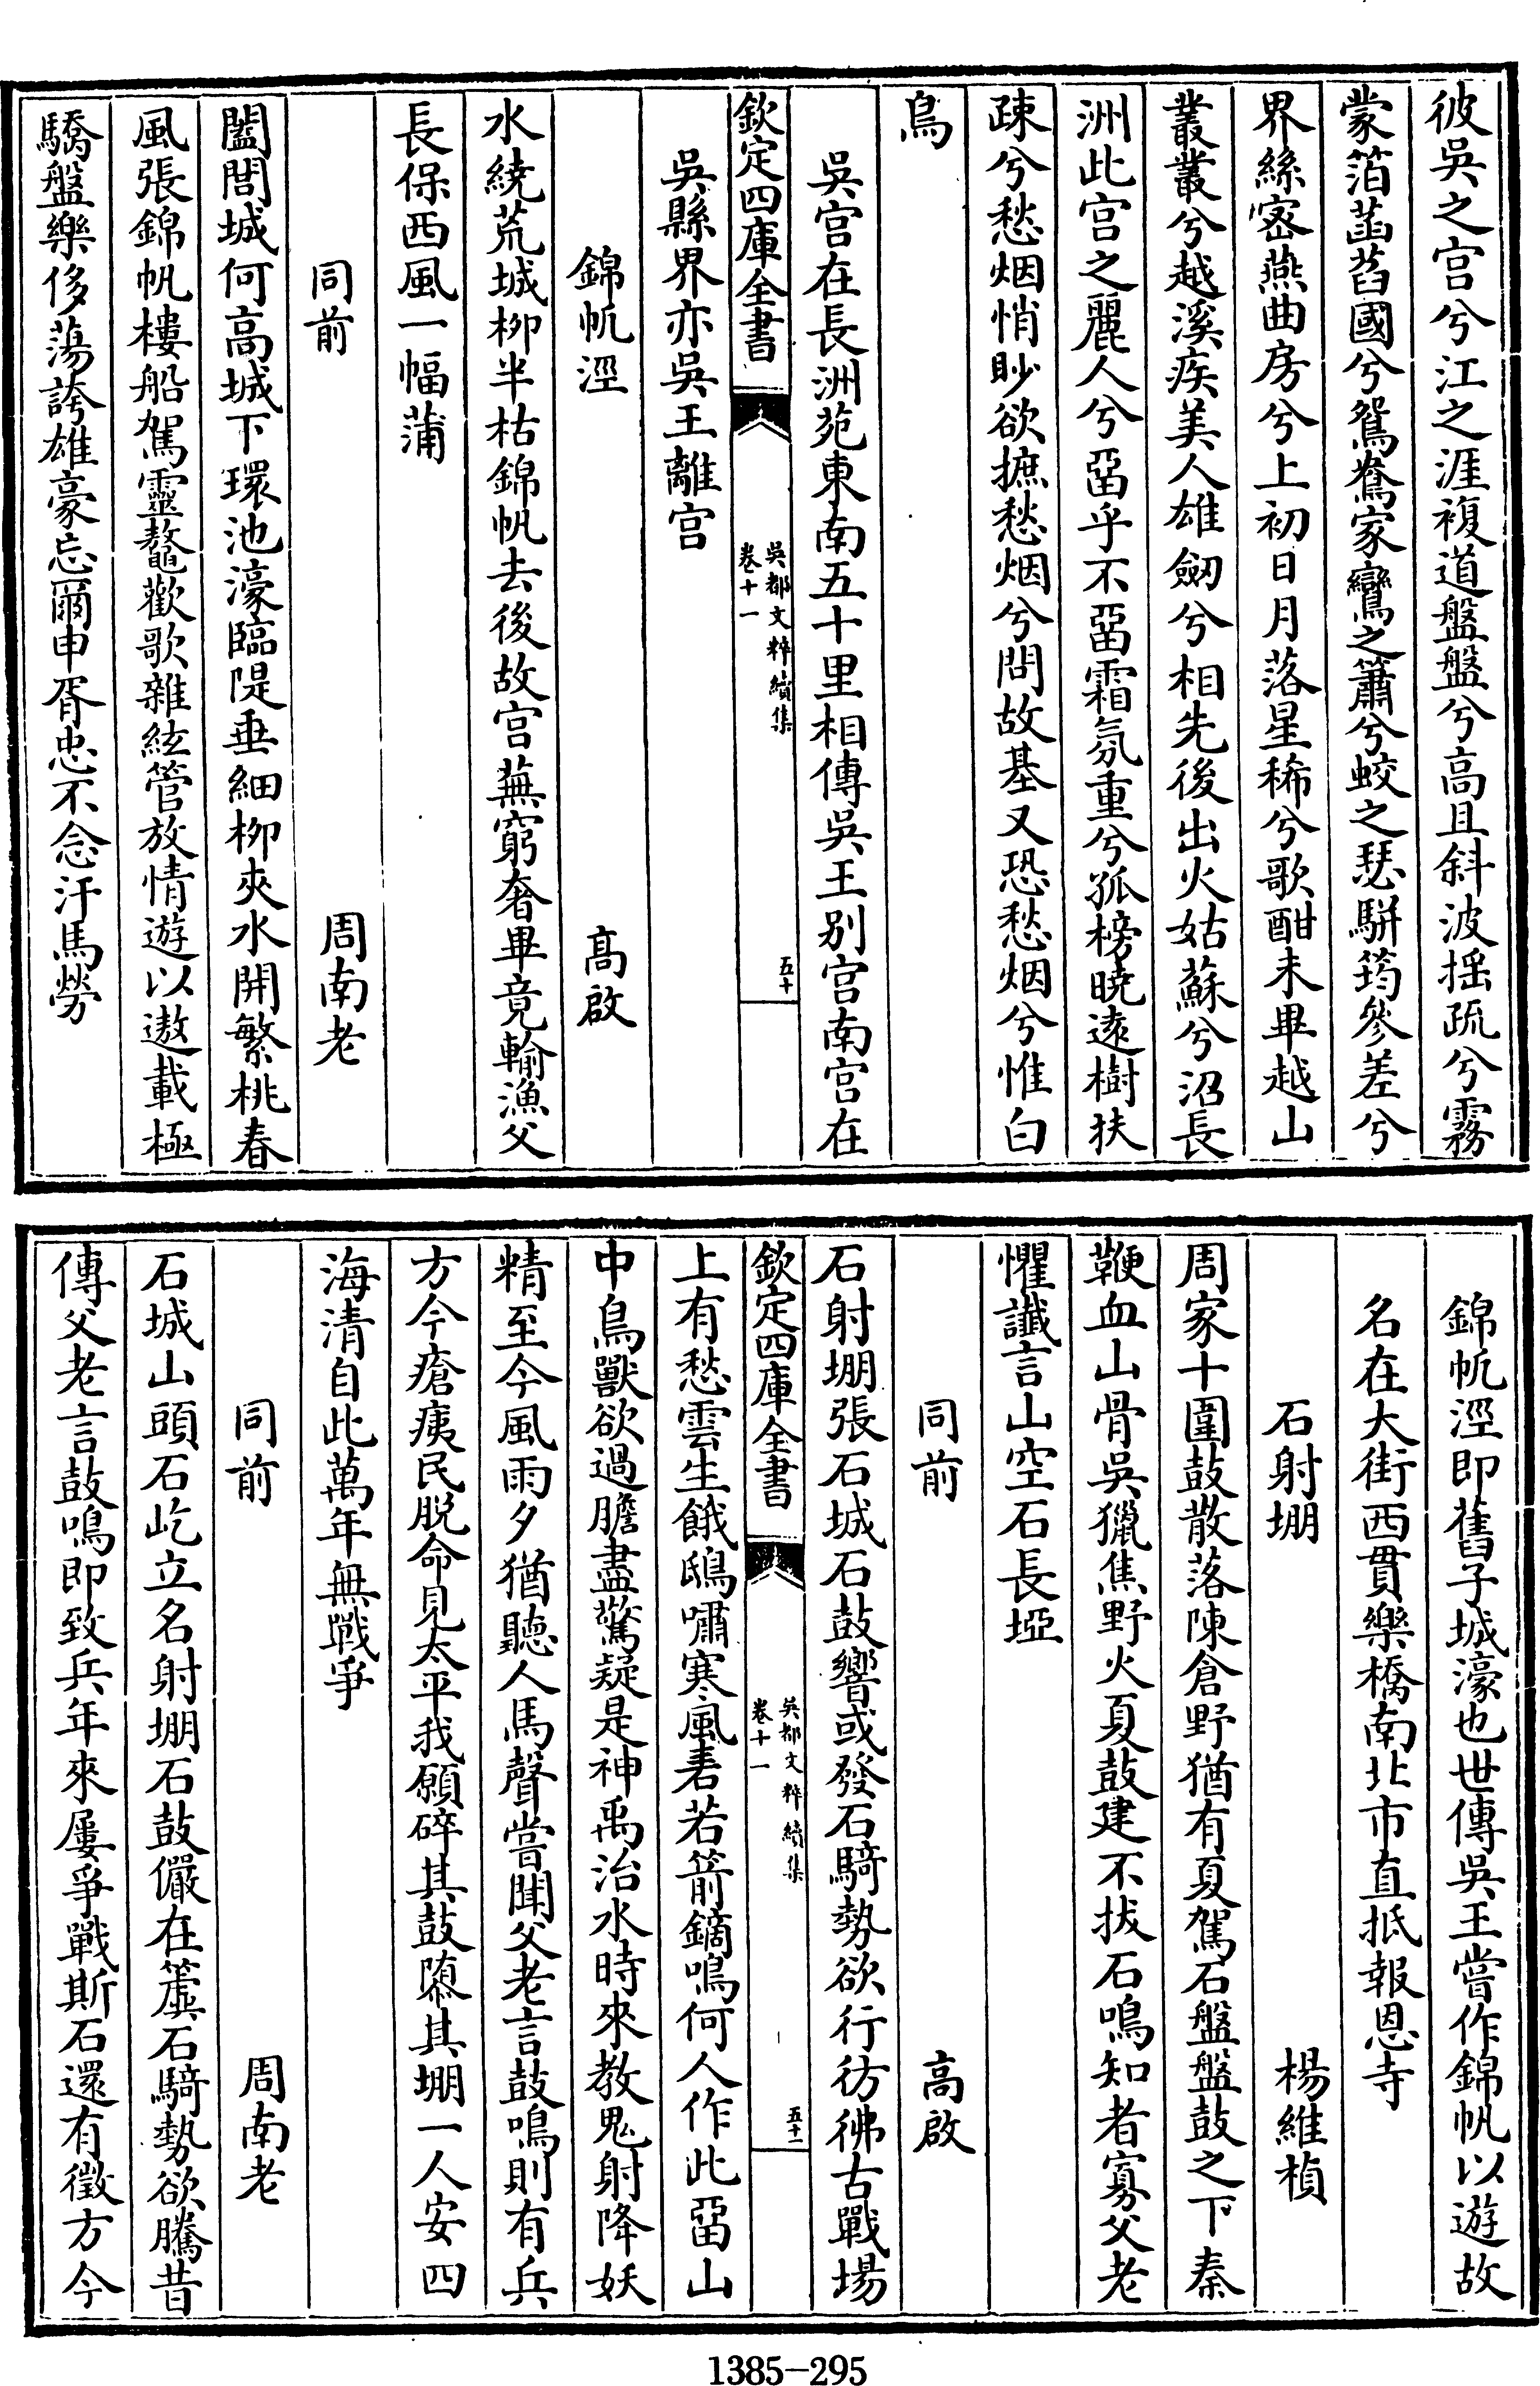 彼吳之宫兮江之涯複道盤盤兮高且斜波摇疏兮霧
蒙箔菡萏國兮鴛鴦家鸞之簫兮蛟之瑟駢筠參差兮
界絲宻燕曲房兮上初日月落星稀兮歌酣未畢越山
叢叢兮越溪疾美人雄劒兮相先後出火姑蘇兮沼長
洲此宫之麗人兮畱乎不畱霜氛重兮孤榜曉逺樹扶
疎兮愁烟悄眇欲摭愁烟兮問故基又恐愁烟兮惟白
鳥
吳宫在長洲苑東南五十里相傳吳王别宫南宫在
欽定四庫全書
吳都文粹續集
卷十一
五十
吳縣界亦吳王離宫
錦帆涇
高啟
水繞荒城柳半枯錦帆去後故宫蕪窮奢畢竟輸漁父
長保西風一幅蒲
同前
周南老
闔閭城何高城下環池濠臨隄垂細柳夾水開繁桃春
風張錦帆樓船駕靈鼇歡歌雜絃管放情遊以遨載極
驕盤樂侈蕩誇雄豪忘爾申胥忠不念汗馬勞
錦帆涇即舊子城濠也世傳吳王嘗作錦帆以遊故
名在大街西貫樂橋南北市直抵報恩寺
石射堋
楊維楨
周家十圍鼓散落陳倉野猶有夏駕石盤盤鼓之下秦
鞭血山骨吳獵焦野火夏鼓建不拔石鳴知者寡父老
懼讖言山空石長埡
同前
高啟
石射堋張石城石鼓響或發石騎勢欲行彷彿古戰場
欽定四庫全書
吳都文粹續集
卷十一
五十一
上有愁雲生餓鴟嘯寒風砉若箭鏑鳴何人作此畱山
中鳥獸欲過膽盡驚疑是神禹治水時來教鬼射降妖
精至今風雨夕猶聽人馬聲嘗聞父老言鼓鳴則有兵
方今瘡痍民脱命見太平我願碎其鼓隳其堋一人安四
海清自此萬年無戰爭
同前
周南老
石城山頭石屹立名射堋石鼓儼在簴石騎勢欲騰昔
傳父老言鼓鳴即致兵年來屢爭戰斯石還有徵方今
1385-295